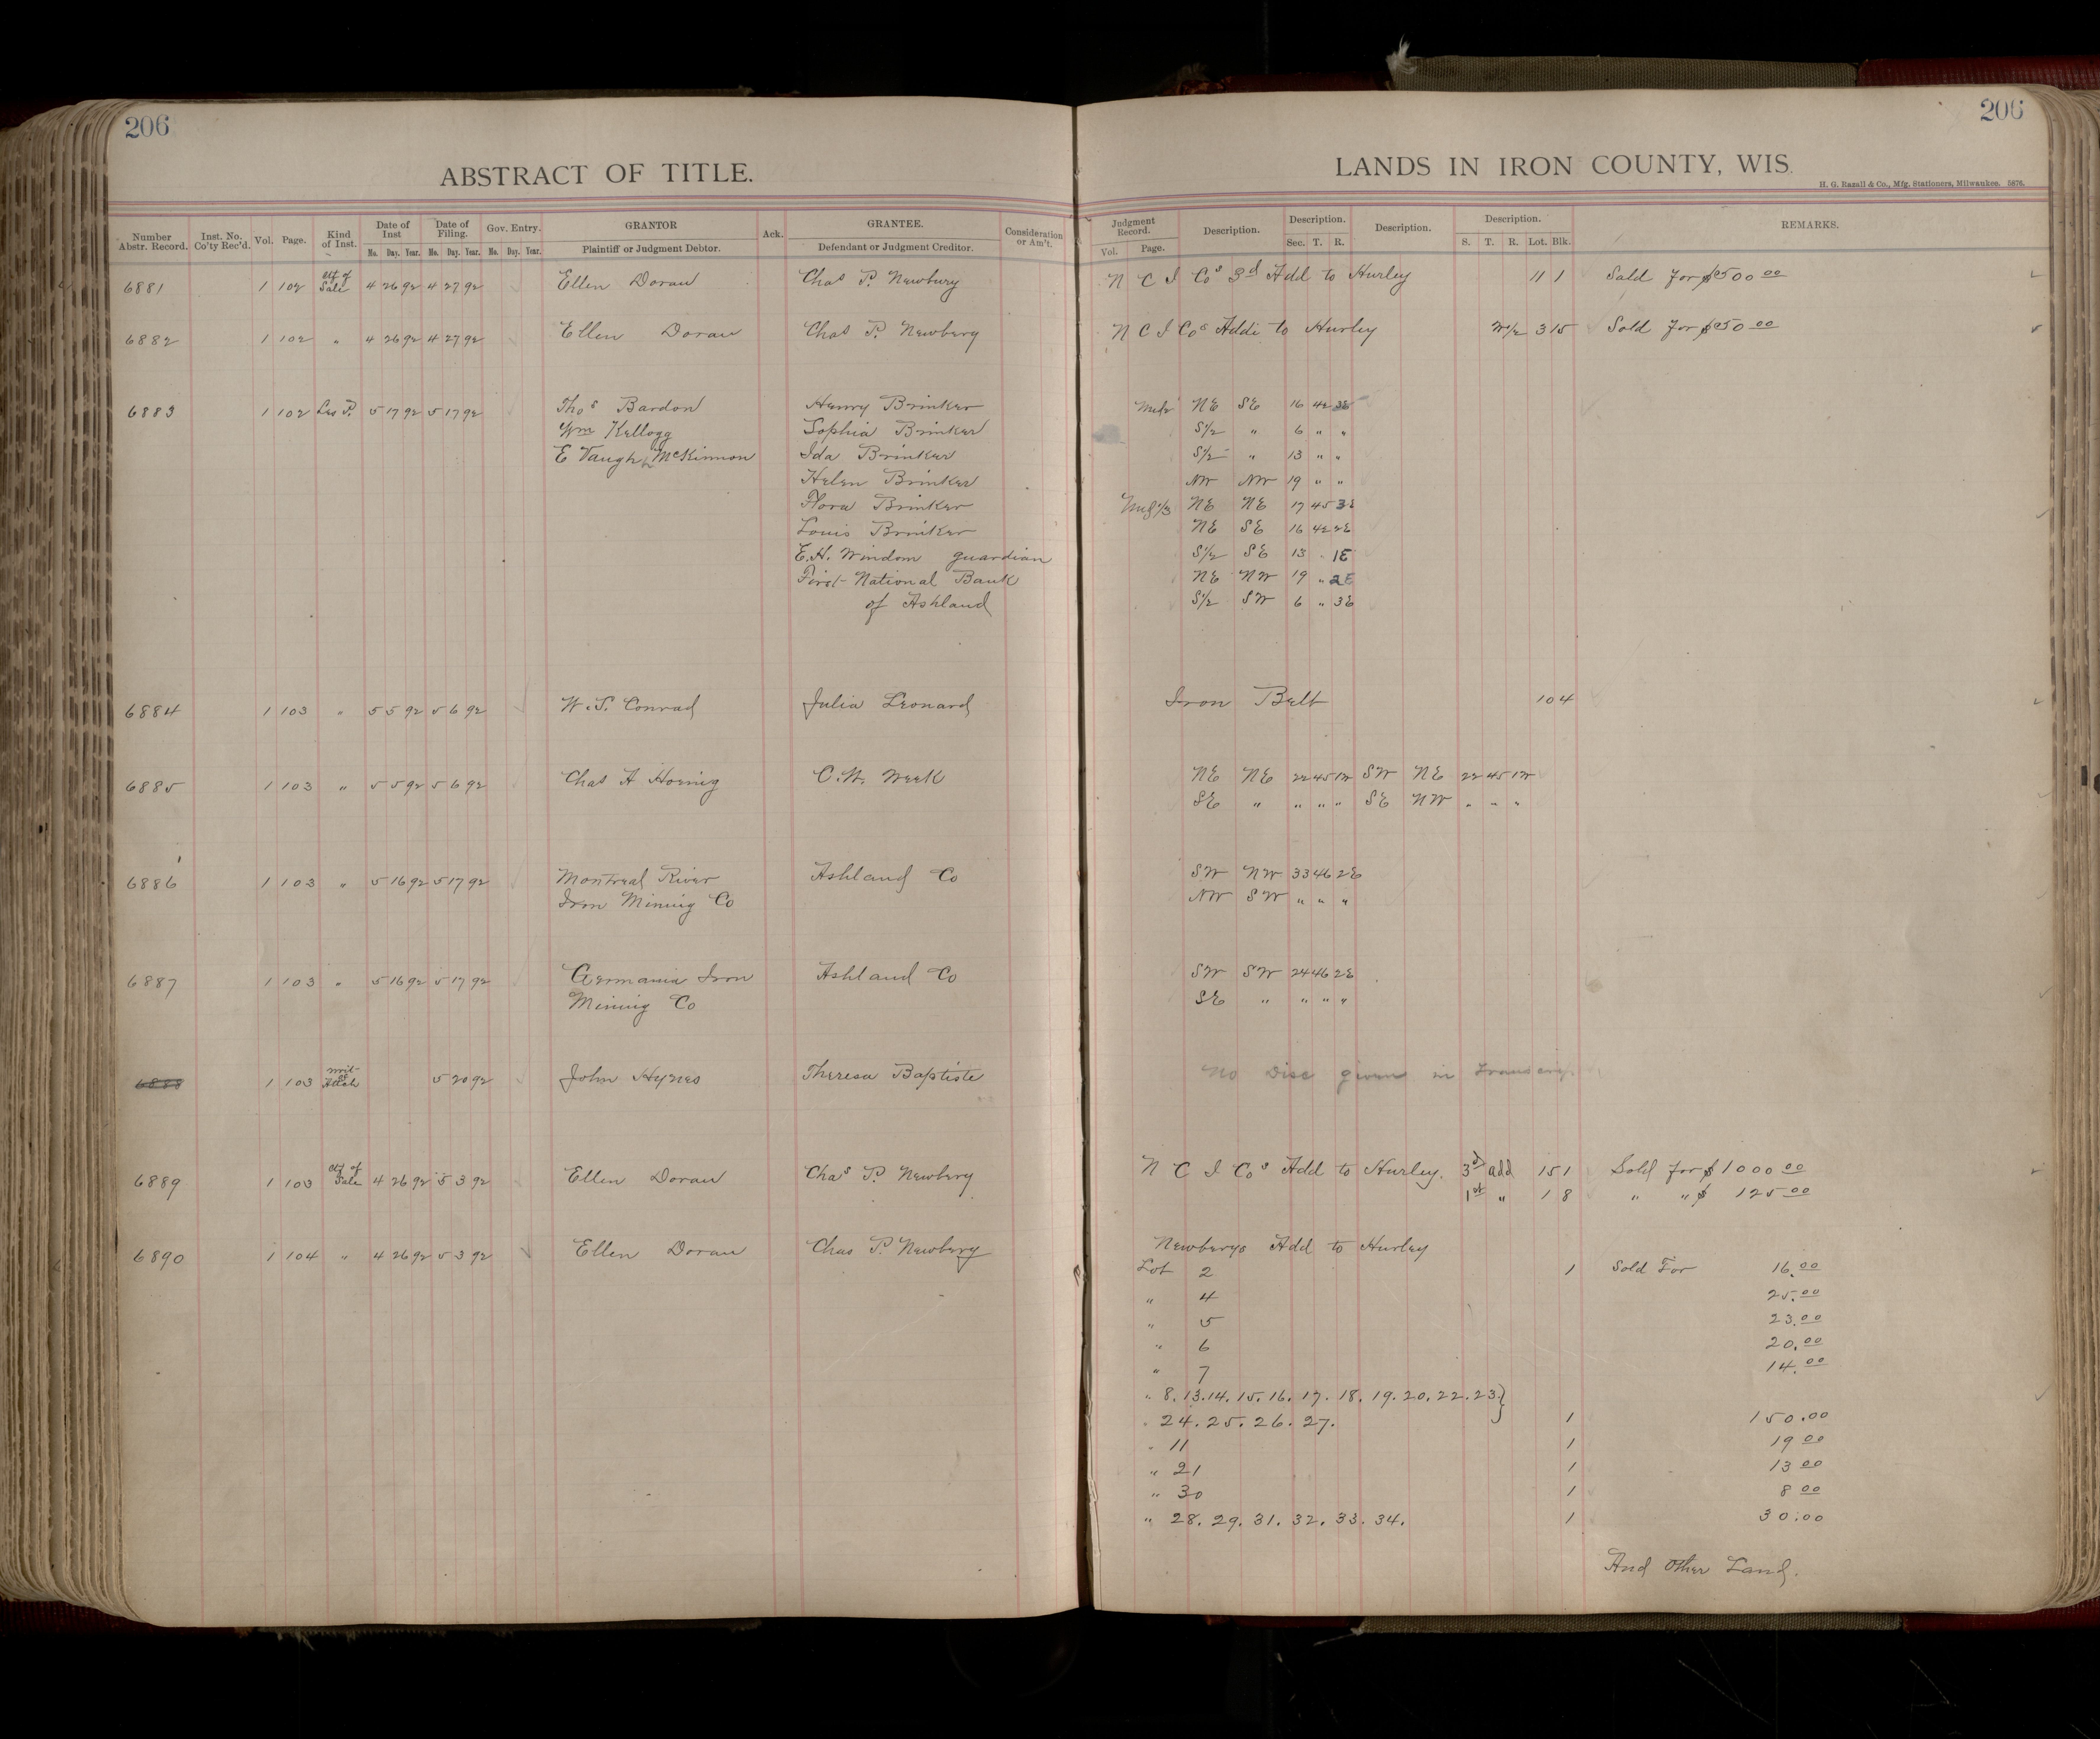 206
206
ABSTRACT OF TITLE.
LANDS IN IRON COUNTY, WIS.
H. G. Razall & Co., Mfg. Stationers, Milwaukee. 5876.
Number Abstr. Record. Inst. No. Co'ty Rec'd. Vol. Page. Kind of Inst. Date of Inst Date of Filing. Gov. Entry. GRANTOR Ack. GRANTEE. Consideration or Am't. Judgment Record. Description. Description. Description. Description. REMARKS.
Mo. Day. Year. Mo. Day. Year. Mo. Day. Year. Plaintiff or Judgment Debtor. Defendant or Judgment Creditor. Vol. Page. Sec. T. R. S. T. R. Lot. Blk.
6881 1 102 Ctf of Sale 4 26 92 4 27 92 Ellen Doran Chas P. Newbury N C I Cos 3d Add to Hurley 11 1 Sold for $500 00
6882 1 102 " 4 26 92 4 27 92 Ellen Doran Chas P. Newbery N C I Cos Addi to Hurley W1/2 3 15 Sold for $50 00
6883 1 102 Lis P. 5 17 92 5 17 92 Thos Bardon Henry Brinker Und1/2 NE SE 16 42
Wm Kellogg Sophia Brinker S1/2 " 6 " "
E Vaughn McKinnon Ida Brinker S1/2 " 13 " "
Helen Brinker NW NW 19 " "
Flora Brinker Und 1/3 NE NE 17 45 3E
Louis Brinker NE SE 16 42 2E
E.H. Windom guardian S1/2 SE 13 " 1E
First National Bank NE NW 19 " 2E
of Ashland S1/2 SW 6 " 3E
6884 1 103 " 5 5 92 5 6 92 W. S. Conrad Julia Leonard Iron Belt 10 4
6885 1 103 " 5 5 92 5 6 92 Chas A Hornig C. W. Week NE NE 22 45 1W SW NE 22 45 1W
SE " " " " SE NW " " "
6886 1 103 " 5 16 92 5 17 92 Montreal River Ashland Co SW NW 33 46 2E
Iron Mining Co NW SW " " "
6887 1 103 " 5 16 92 5 17 92 Germania Iron Ashland Co SW SW 24 46 2E
Mining Co SE " " " "
6888 1 103 Writ of Attch 5 20 92 John Hynes Theresa Baptiste No Disc given in
6889 1 103 Ctf of Sale 4 26 92 5 3 92 Ellen Doran Chas P. Newbery N C I Cos Add to Hurley. 3d add 15 1 Sold for $1000 00
1st " 1 8 " " $ 125 00
6890 1 104 " 4 26 92 5 3 92 Ellen Doran Chas P. Newbery Newberys Add to Hurley
Lot 2 1 Sold For 16.00
" 4 25.00
" 5 23.00
" 6 20.00
" 7 14.00
" 8. 13. 14. 15. 16. 17. 18. 19. 20. 22. 23 }
" 24. 25. 26. 27. 1 150.00
" 11 1 19 00
" 21 1 13 00
" 30 1 8 00
" 28. 29. 31. 32. 33. 34. 1 30.00
And Other Land.